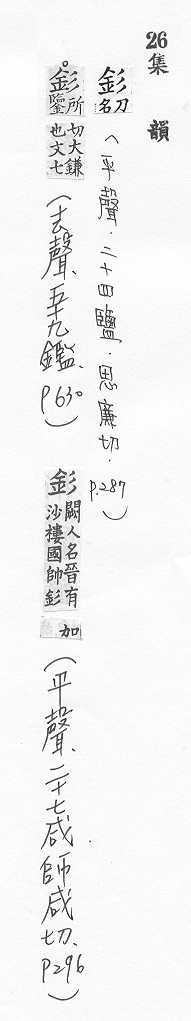 26 集 韻
釤 刀名 (平聲.二十四鹽.思廉切.P.287)
釤 所鑒切大鎌也文七 (去聲、五十九鑑、P630) 釤 闕人名晉有沙樓國帥釤加 (平聲、二十七咸師咸切、P296)